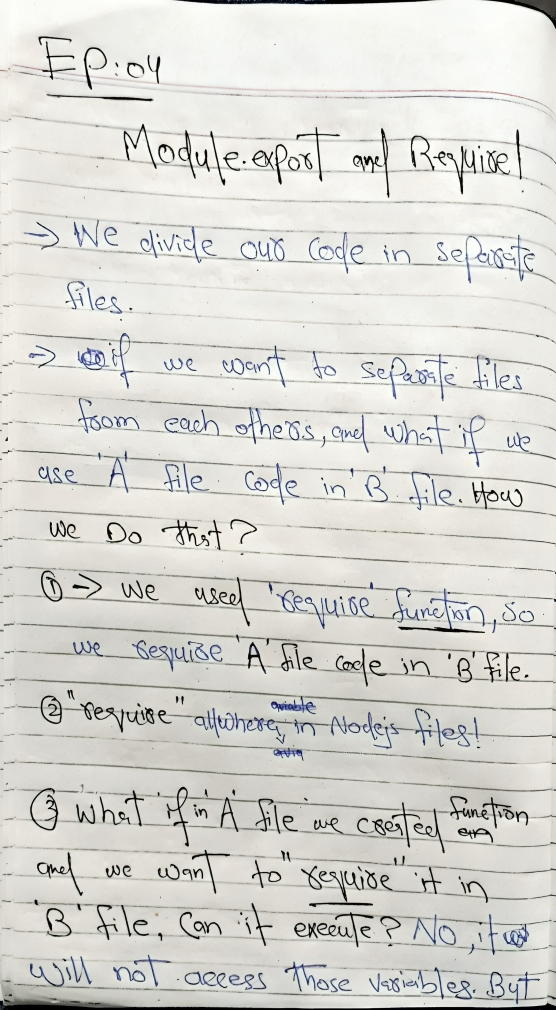 EP:04
Module.export and Require!
→ We divide our code in separate
files.
→ if we want to separate files
from each others, and what if we
use 'A' file code in 'B' file. How
we Do that?
① → We used 'require' function, so
we require 'A' file code in 'B' file.
② "require" allwhere, in Nodejs files!
③ What if in 'A' file we created function
and we want to "require" it in
'B' file, Can it execute? NO, it
will not access those variables. But